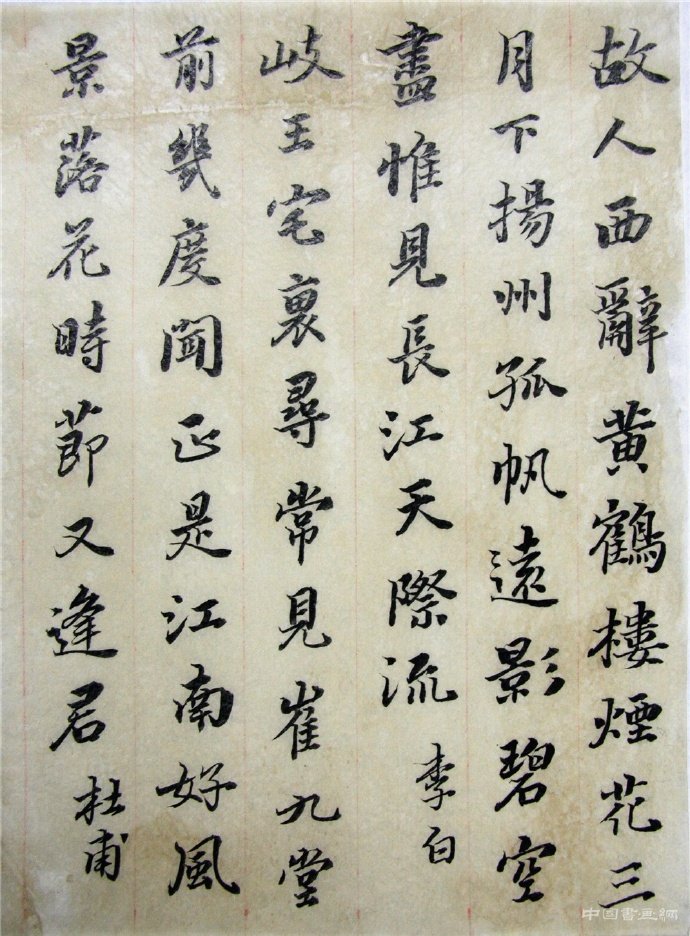 故人西辭黄鶴樓煙花三
月下揚州孤帆遠影碧空
盡惟見長江天際流
李白
岐王宅裏尋常見崔九堂
前幾度聞正是江南好風
景落花時節又逢君
杜甫
中国書画網